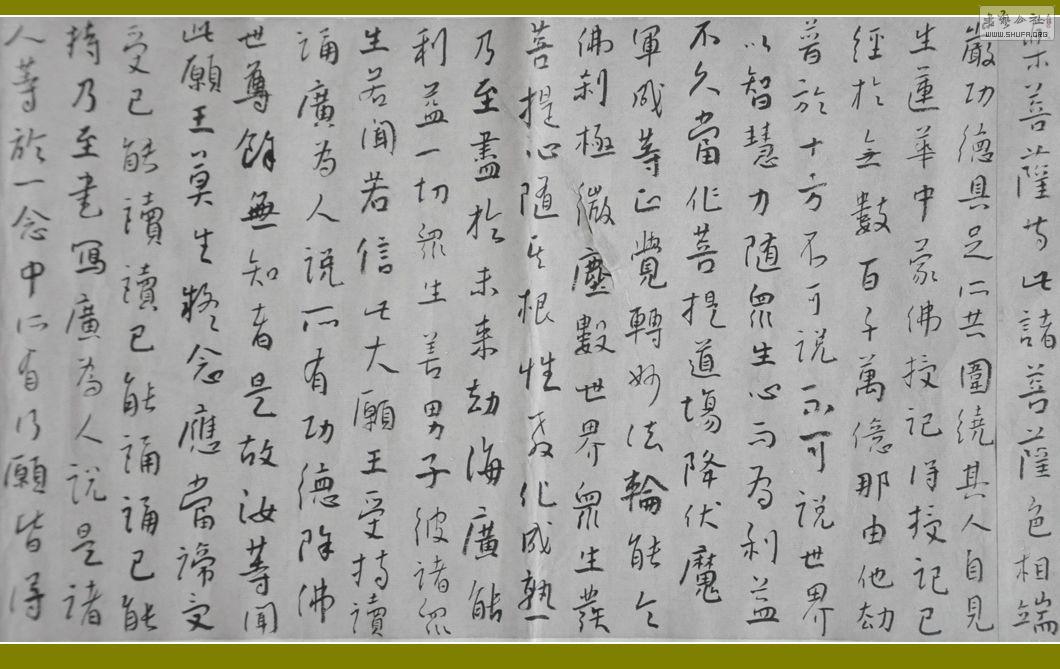 樂菩薩等此諸菩薩色相端
嚴功德具足所共圍繞其人自見
生蓮華中蒙佛授記得授記已
經於無數百千萬億那由他劫
普於十方不可說不可說世界
以智慧力隨眾生心而為利益
不久當作菩提道場降伏魔
軍成等正覺轉妙法輪能令
佛剎極微塵數世界眾生發
菩提心隨其根性教化成熟
乃至盡於未來劫海廣能
利益一切眾生善男子彼諸眾
生若聞若信此大願王受持讀
誦廣為人說所有功德除佛
世尊餘無知者是故汝等聞
此願王莫生疑念應當諦受
受已能讀讀已能誦誦已能
持乃至書寫廣為人說是諸
人等於一念中所有行願皆得
WWW.SHUFA.ORG